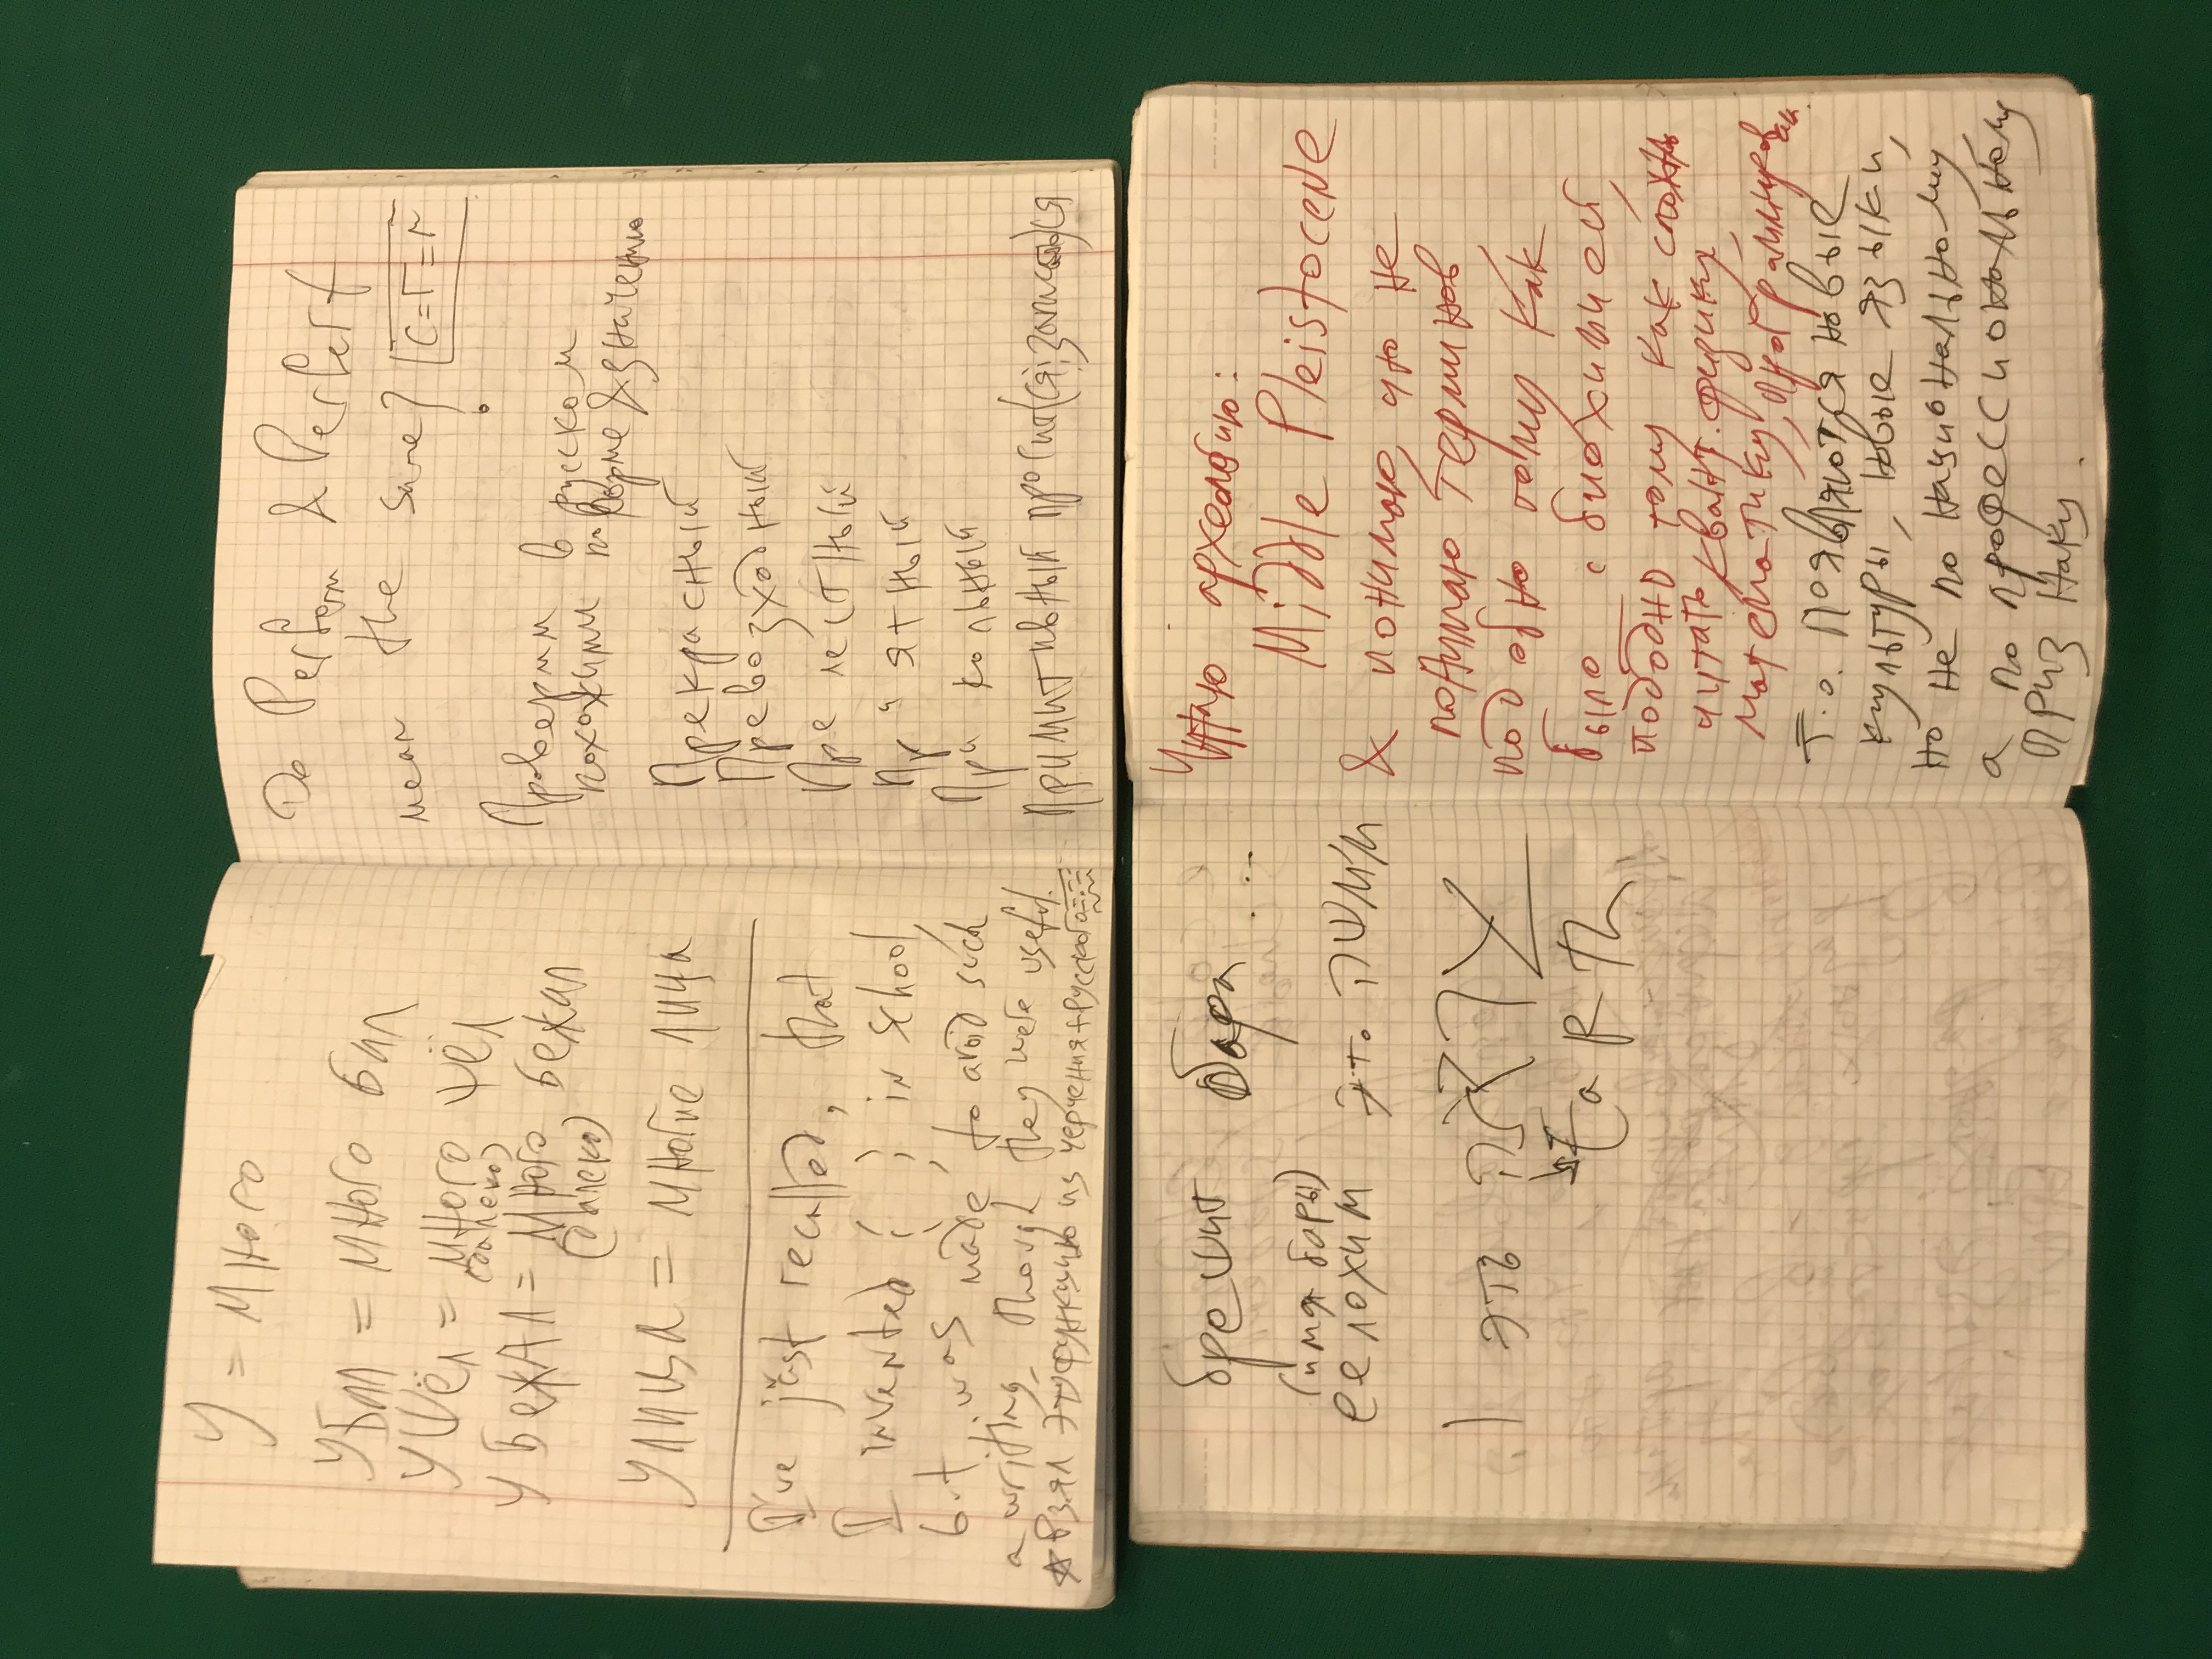 У = много
Убил = много бил
Ушёл = много шёл
(далеко)
УБежАл = много бежал
(далеко)
Улица = многие лица
I've just recalled, that
I invented ¦ ; in school,
but was made to avoid such
a writing, though they were useful.
взял эту функцию из черчения+русского
Do Perform & Perfect
mean the same?
C=Г=r
Проверим в русском
похожими по форме & значению
Прекрасный
Превозходный
Прелестный
Приятный
Прикольный
примитивный
брешит бара...
(имя бары)
еелохим это
это
EaRTh
Читаю археологию:
Middle Pleistocene
& понимаю, что не
понимаю терминов,
подобно тому как
было с биохимией,
подобно тому как сложно
читать квант. физику,
математику, программирован.
Т.о. появляются новые
культуры, новые языки,
но не по национальному,
а по профессиональному
признаку.